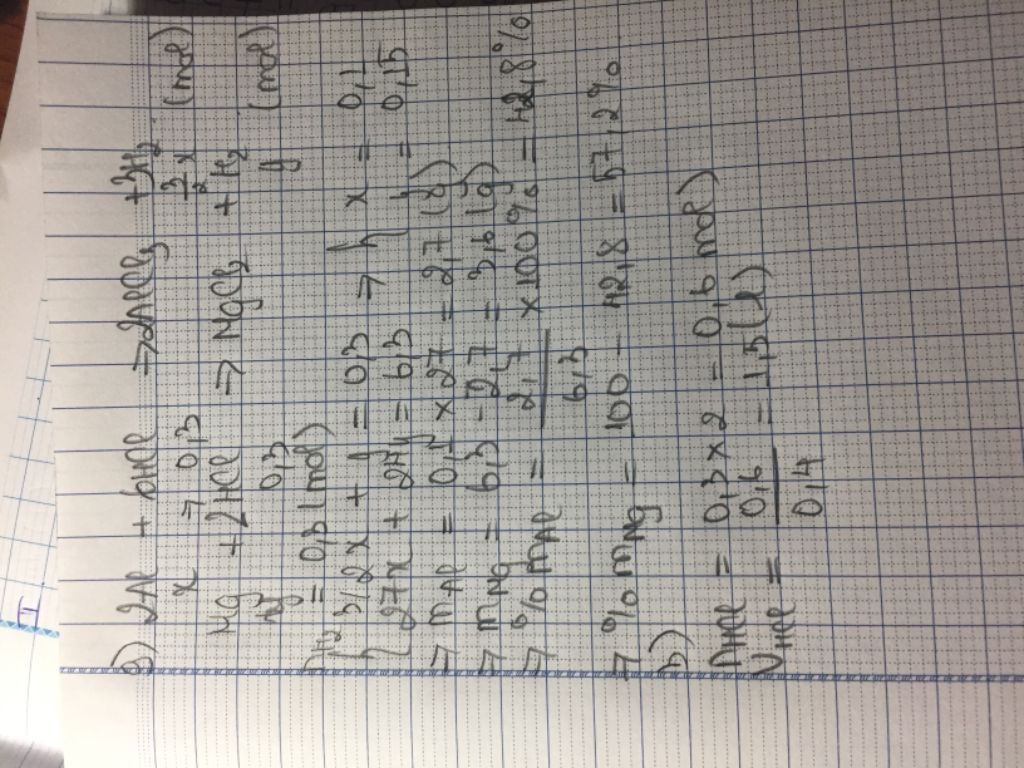 a) 2Al + 6HCl → 2AlCl3 + 3H2
x → 0,3 3/2 x (mol)
Mg + 2HCl → MgCl2 + H2
y 0,3 y (mol)
nH2 = 0,3 (mol)
{ 3/2x + y = 0,3 → { x = 0,1
{ 27x + 24y = 6,3 y = 0,15
→ mAl = 0,1 × 27 = 2,7 (g)
→ mMg = 6,3 - 2,7 = 3,6 (g)
→ % mAl = 2,7/6,3 × 100% = 42,8%
→ % mMg = 100 - 42,8 = 57,2%
b)
nHCl = 0,3 × 2 = 0,6 mol)
VHCl = 0,6/0,4 = 1,5 (l)